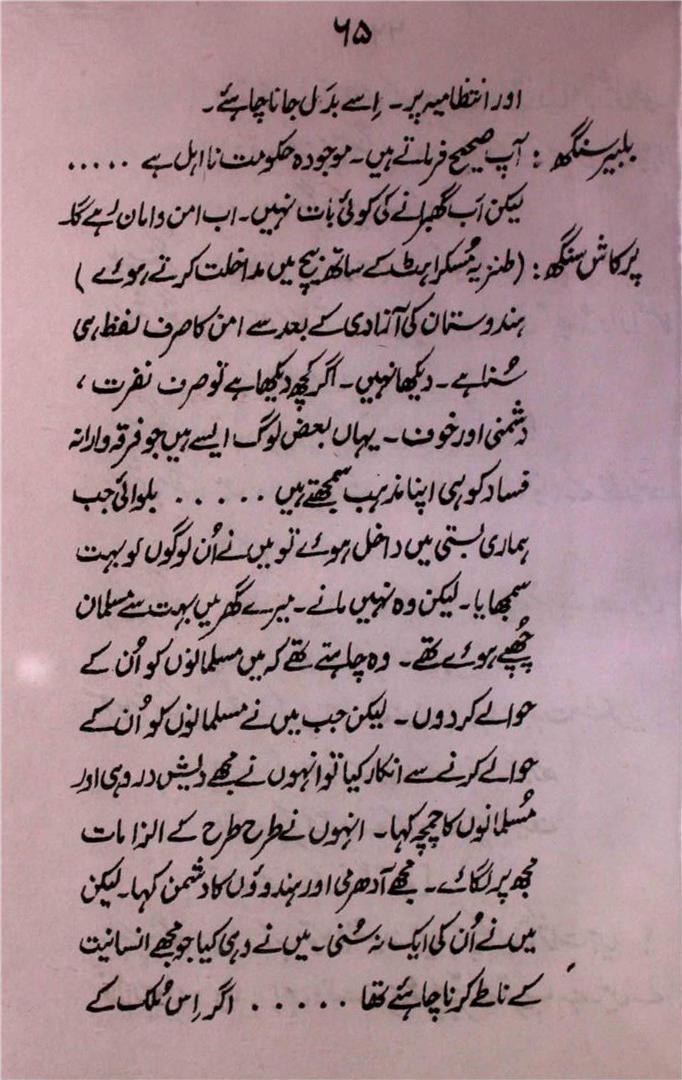 ۶۵
اور انتظامیہ پر۔ اِسے بدَل جانا چاہئے۔
بلبیر سنگھ : آپ صحیح فرماتے ہیں۔ موجودہ حکومت نا اہل ہے .....
لیکن اَب گھبرانے کی کوئی بات نہیں۔ اب امن و امان رہے گا۔
پرکاش سنگھ : (طنزیہ مُسکراہٹ کے ساتھ بیچ میں مداخلت کرتے ہوئے)
ہندوستان کی آزادی کے بعد سے امن کا صرف لفظ ہی
سُنا ہے۔ دیکھا نہیں۔ اگر کچھ دیکھا ہے تو صرف نفرت ،
دشمنی اور خوف۔ یہاں بعض لوگ ایسے ہیں جو فرقہ وارانہ
فساد کو ہی اپنا مذہب سمجھتے ہیں ..... بلوائی جب
ہماری بستی میں داخل ہوئے تو میں نے اُن لوگوں کو بہت
سمجھایا۔ لیکن وہ نہیں مانے۔ میرے گھر میں بہت سے مسلمان
چُھپے ہوئے تھے۔ وہ چاہتے تھے کہ میں مسلمانوں کو اُن کے
حوالے کر دوں۔ لیکن جب میں نے مسلمانوں کو اُن کے
حوالے کرنے سے انکار کیا تو انہوں نے مجھے دیش دروہی اور
مُسلمانوں کا چمچہ کہا۔ انہوں نے طرح طرح کے الزامات
مجھ پر لگائے۔ مجھے آدھرمی اور ہندوؤں کا دشمن کہا۔ لیکن
میں نے اُن کی ایک نہ سُنی۔ میں نے وہی کیا جو مجھے انسانیت
کے ناطے کرنا چاہئے تھا ..... اگر اِس مُلک کے